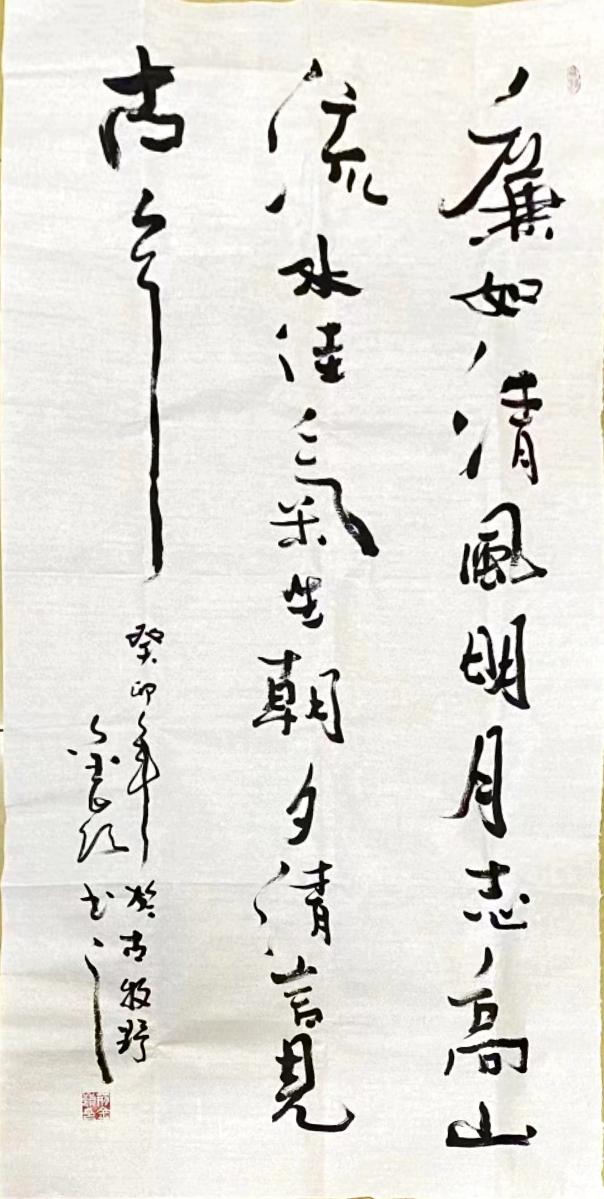 廉如清風明月志高山
流水佳氣生朝夕清言見
古今
癸卯年於古牧野
書之